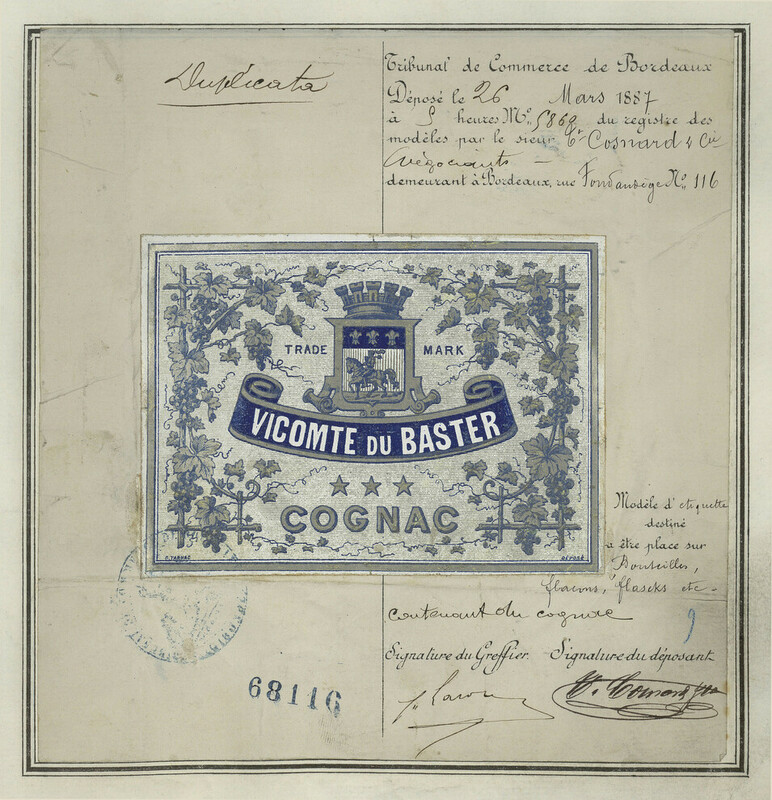 Duplicata
Tribunal de Commerce de Bordeaux
Déposé le 26 Mars 1887
à 5 heures No. 5862 du registre des
modèles par le sieur Cosnard & Cie
négociants —
demeurant à Bordeaux, rue Fondaudège No. 116
TRADE MARK
VICOMTE DU BASTER
COGNAC
DÉPOSÉ
Modèle d'etiquette
destiné
a être place sur
Bouteilles,
flacons, flascks etc -
contenant du cognac
9
Signature du Greffier. Signature du déposant
68116